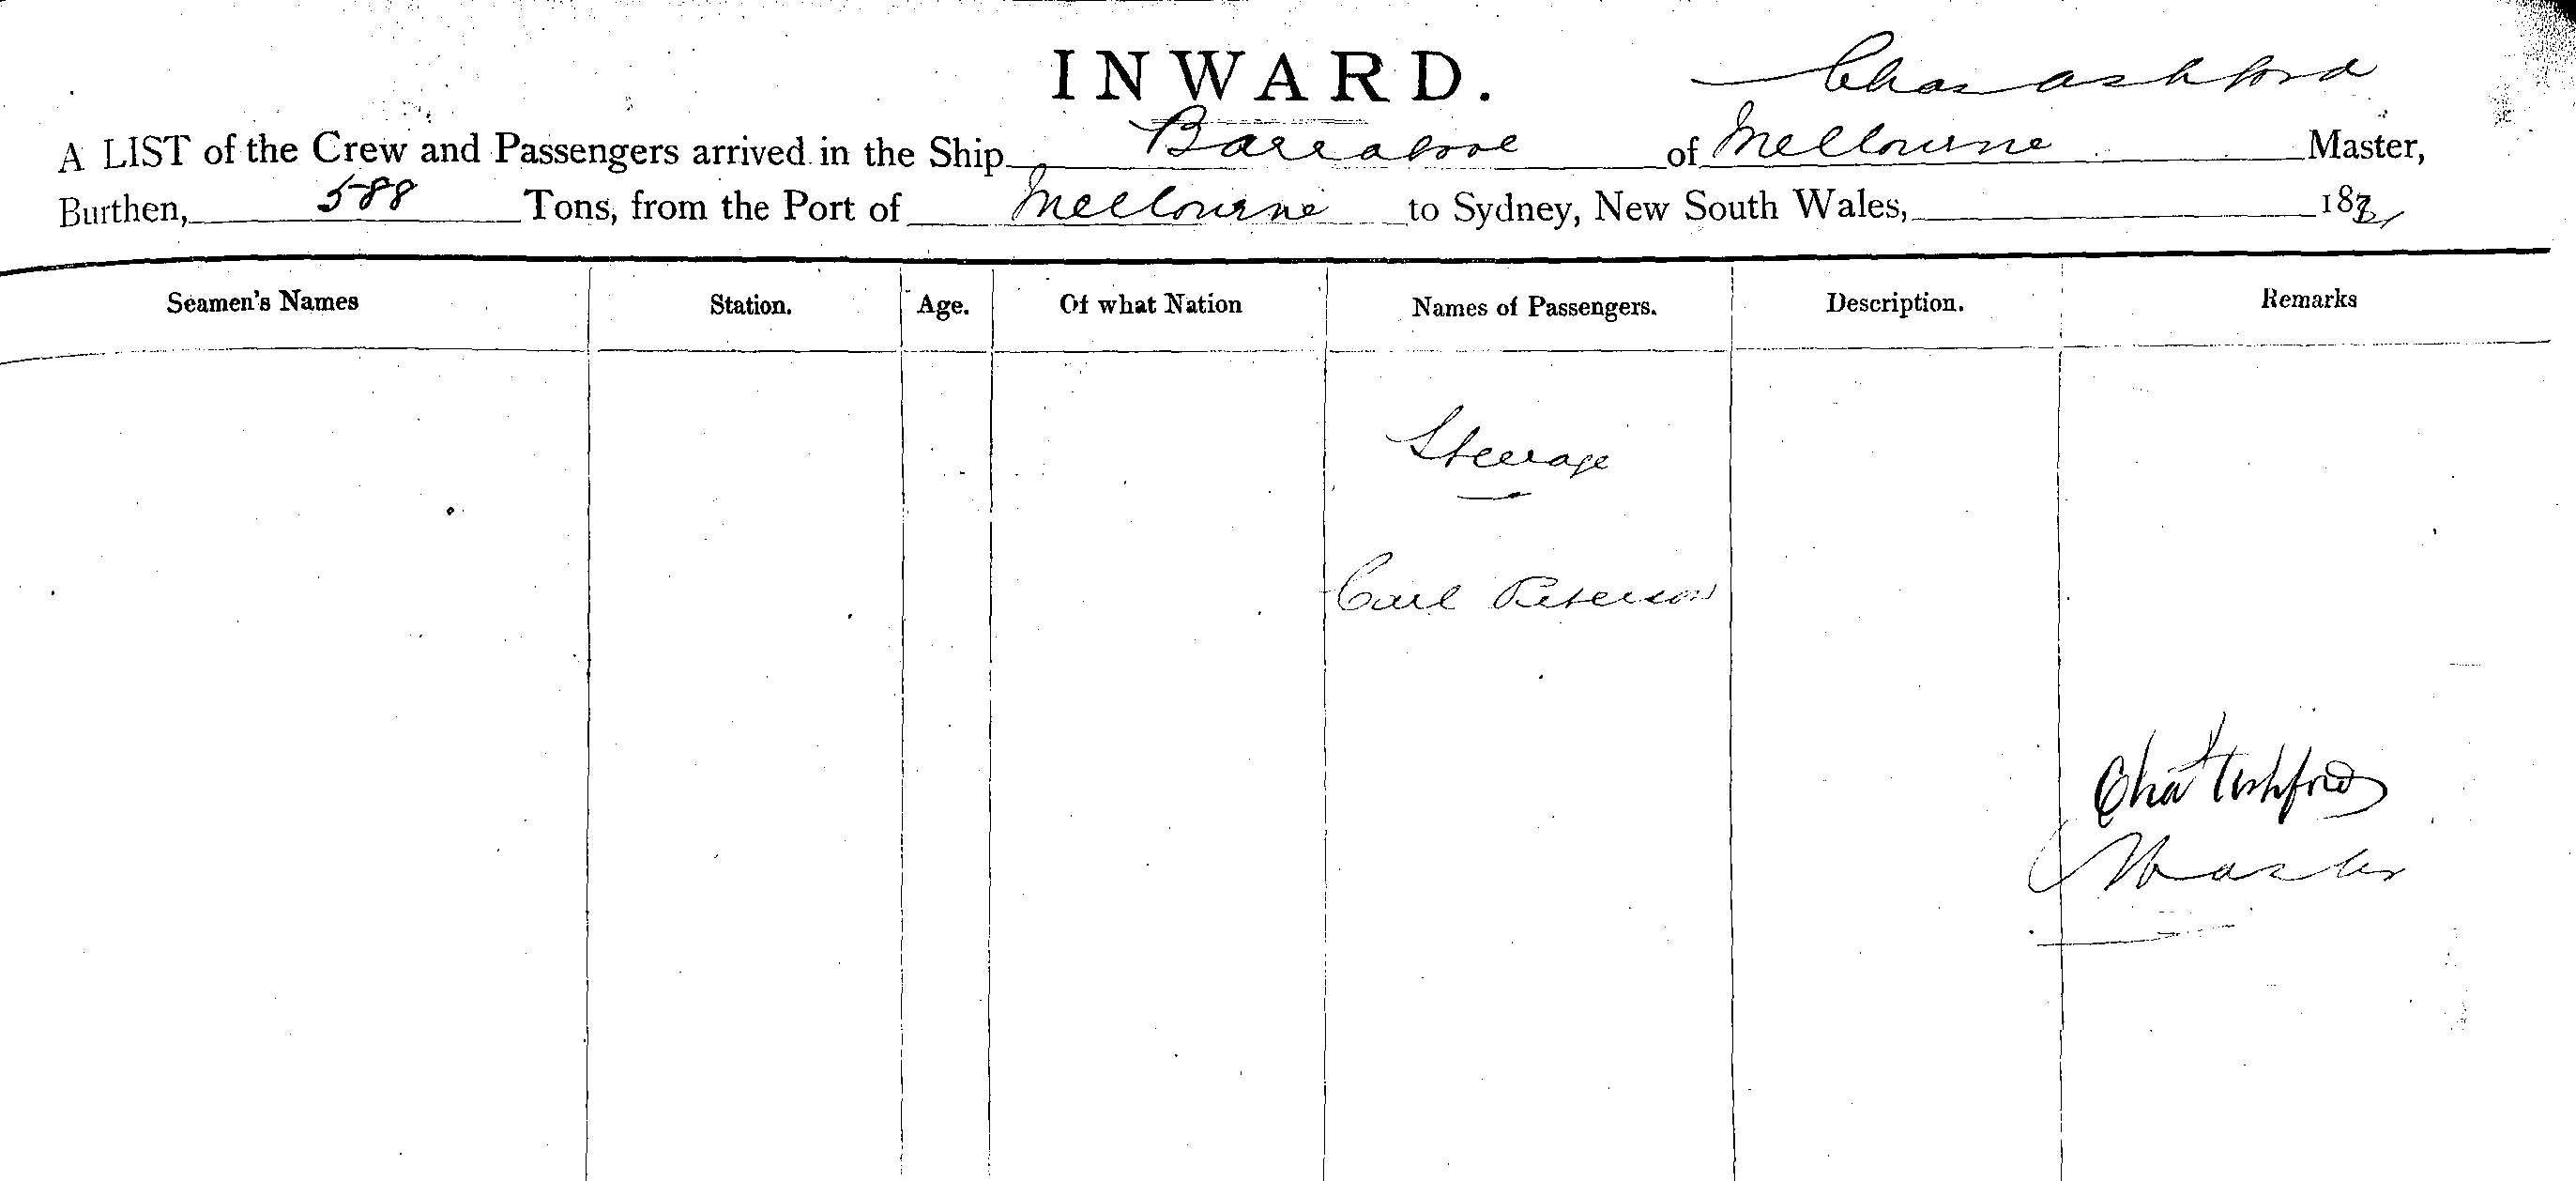 INWARD.
Chas Ashford
A LIST of the Crew and Passengers arrived in the Ship Barrabool of Melbourne Master,
Burthen, 588 Tons, from the Port of Melbourne to Sydney, New South Wales, 18
Seamen's Names Station. Age. Of what Nation Names of Passengers. Description. Remarks
Steerage
Carl Peterson
Chas Ashford
Master